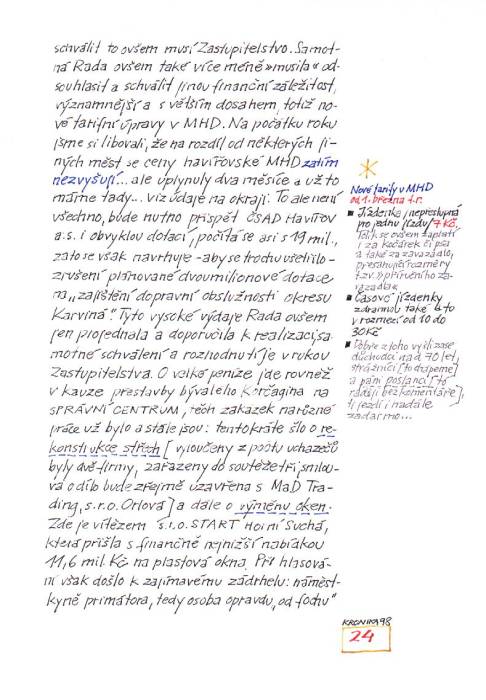 schválit to ovšem musí Zastupitelstvo. Samot-
ná Rada ovšem také více méně »musila« od-
souhlasit a schválit jinou finanční záležitost,
významnější a s větším dosahem, totiž no-
vé tarifní úpravy v MHD. Na počátku roku
jsme si libovali, že na rozdíl od některých ji-
ných měst se ceny havířovské MHD zatím
nezvyšují... ale uplynuly dva měsíce a už to
máme tady... viz údaje na okraji. To ale není
všechno, bude nutno přispět ČSAD Havířov
a.s. i obvyklou dotací, počítá se asi s 19 mil.,
zato se však navrhuje - aby se trochu ušetřilo -
zrušení plánované dvoumilionové dotace
na „zajištění dopravní obslužnosti okresu
Karviná". Tyto vysoké výdaje Rada ovšem
jen projednala a doporučila k realizaci, sa-
motné schválení a rozhodnutí je v rukou
Zastupitelstva. O velké peníze jde rovněž
v kauze přestavby bývalého Korčagina na
SPRÁVNÍ CENTRUM, těch zakázek na různé
práce už bylo a stále jsou: tentokráte šlo o re-
konstrukce střech [vyloučeny z počtu uchazečů
byly dvě firmy, zařazeny do soutěže tři, smlou-
va o dílo bude zřejmě uzavřena s MaD Tra-
ding, s.r.o. Orlová] a dále o výměnu oken.
Zde je vítězem s.r.o. START Horní Suchá,
která přišla s finančně nejnižší nabídkou
11,6 mil. Kč na plastová okna. Při hlasová-
ní však došlo k zajímavému zádrhelu: náměst-
kyně primátora, tedy osoba opravdu „od fochu"
Nové tarify v MHD
od 1. března t.r.
■ Jízdenka, nepřestupná
pro jednu jízdu, 7 Kč.
Tolik se ovšem zaplatí
i za kočárek či psa
a také za zavazadlo,
přesahující rozměry
tzv. »příručního za-
vazadla«
■ Časové jízdenky
zdražily také a to
v rozmezí od 10 do
30 Kč
■ Dobře z toho vyšli zase
důchodci nad 70 let,
strážníci [to chápeme]
a páni poslanci [to
raději bez komentáře],
ti jezdí i nadále
zadarmo...
KRONIKA 98
24